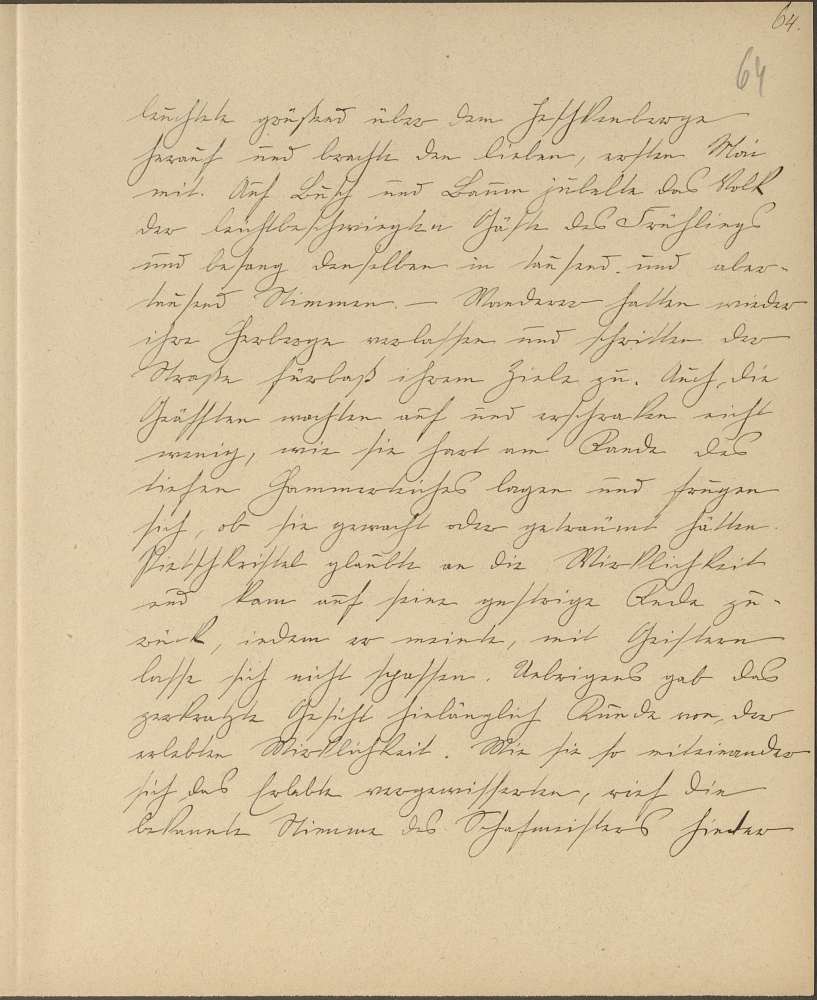 64.
64
leuchtete grüßend über dem Jeschkenberge
herauf und brachte den lieben, ersten Mai
mit. Auf Busch und Baum jubelte das Volk
der leichtbeschwingten Gäste des Frühlings
und besang denselben in tausend und aber-
tausend Stimmen. — Wanderer hatten wieder
ihre Herberge verlassen und schritten der
Straße fürbaß ihrem Ziele zu. Auch die
Geäfften wachten auf und erschraken nicht
wenig, wie sie hart am Rande des
tiefen Hammerteiches lagen und frugen
sich, ob sie gewacht oder geträumt hätten.
Pietschkristel glaubte an die Wirklichkeit
und kam auf seine gestrige Rede zu-
rück, indem er meinte, mit Geistern
lasse sich nicht spassen. Uebrigens gab das
zerkratzte Gesicht hinlänglich Kunde von der
erlebten Wirklichkeit. Wie sie so miteinander
sich das Erlebte vergewisserten, rief die
bekannte Stimme des Schafmeisters hinter